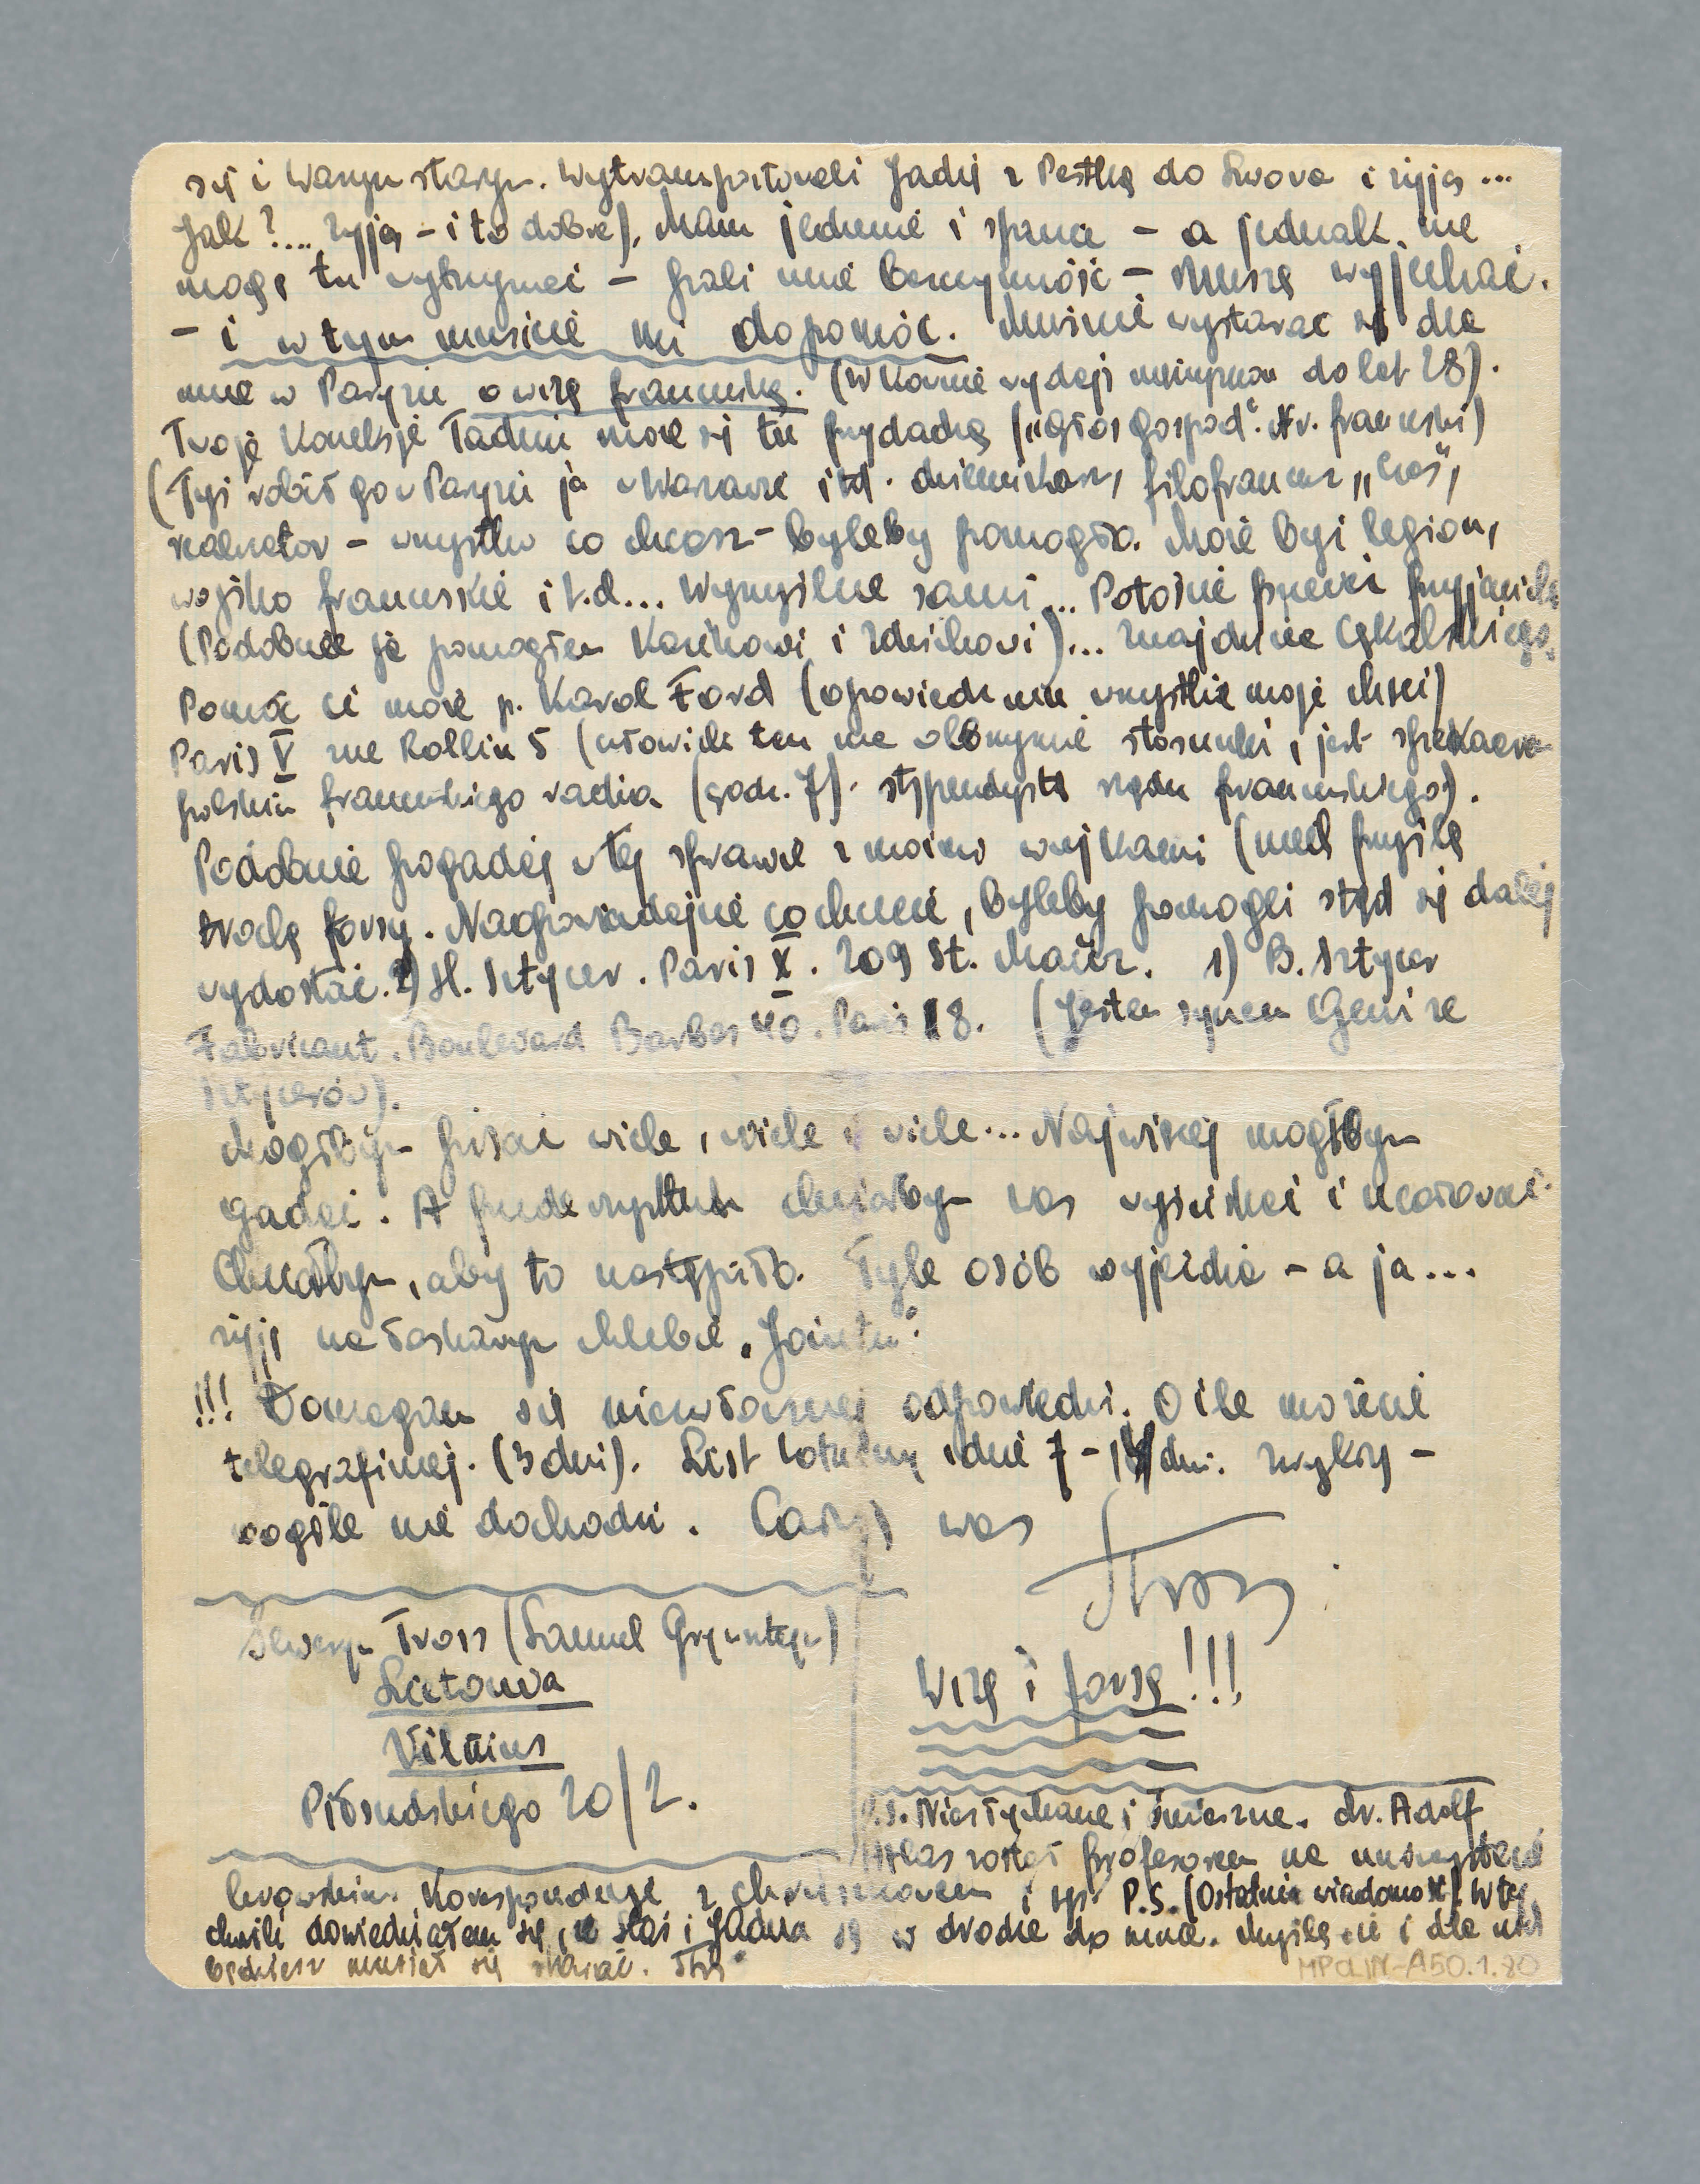 się i Waszym starym. Wytransportowali Jadzię z Pestką do Lwowa i żyją...
Jak?... żyją - i to dobrze). Mam jedzenie i spanie - a jednak nie
mogę tu wytrzymać - pali mnie bezczynność - Muszę wyjechać.
- i w tym musicie mi dopomóc. Musicie wystarać się dla
mnie w Paryżu o wizę francuską. (W Kownie wydają mężczyznom do lat 28).
Twoje koneksje Tadziu może się tu przydadzą („Głos gospod." Nr. francuski)
(Tyś robił go w Paryżu ja w Warszawie itd. dziennikarz, filofrancuz,
senator - wszystko co chcesz - byleby pomogło. Może być legion,
wojsko francuskie i t.d... Wymyślcie sami... Potoście przecież przyjaciele
(Podobnie ja pomogłem Kazikowi i Zdzichowi)... znajdziecie Cękalskiego.
Pomóc ci może p. Karol Ford (opowiedz mu wszystkie moje chęci)
Paris V rue Rollin 5 (człowiek ten ma olbrzymie stosunki, jest speakerem
polskim francuskiego radia (godz. 7). stypendysta rządu francuskiego).
Podobnie pogadaj w tej sprawie z moimi wujkami (niech przyślą
trochę forsy. Naopowiadajcie co chcecie, byleby pomogli stąd się dalej
wydostać. 2) H. Sztycer. Paris X. 209 St. Maur. 1) B. Sztycer
Fabricant. Boulevard Barbes 40. Paris 18. (Jestem synem Geni ze
Sztycerów).
Mógłbym pisać wiele, wiele i wiele... Najwięcej mógłbym
gadać. A przede wszystkim chciałbym was wyściskać i ucałować.
Chciałbym, aby to nastąpiło. Tyle osób wyjeżdża - a ja...
żyję na łaskawym chlebie „Jointu".
!!! Domagam się niezwłocznej odpowiedzi. O ile możecie
telegraficznej. (3 dni). List lotniczy idzie 7 - 14 dni. zwykły -
wogóle nie dochodzi. Całuję was
Tros
Seweryn Tross (Samuel Grynsztejn)
Lietouva
Vilnius
Piłsudskiego 20/2.
Wizę i forsę!!!
P.S. Niesłychane i śmieszne. dr. Adolf
został profesorem na uniwersytecie
lwowskim. Koresponduję z i P.S. (Ostatnia wiadomość). W tej
chwili dowiedziałem się, że Staś i Jadzia są w drodze do mnie. Myślę że i dla nich
będziesz musiał się starać. Tros
MPOLIN-A50.1.80